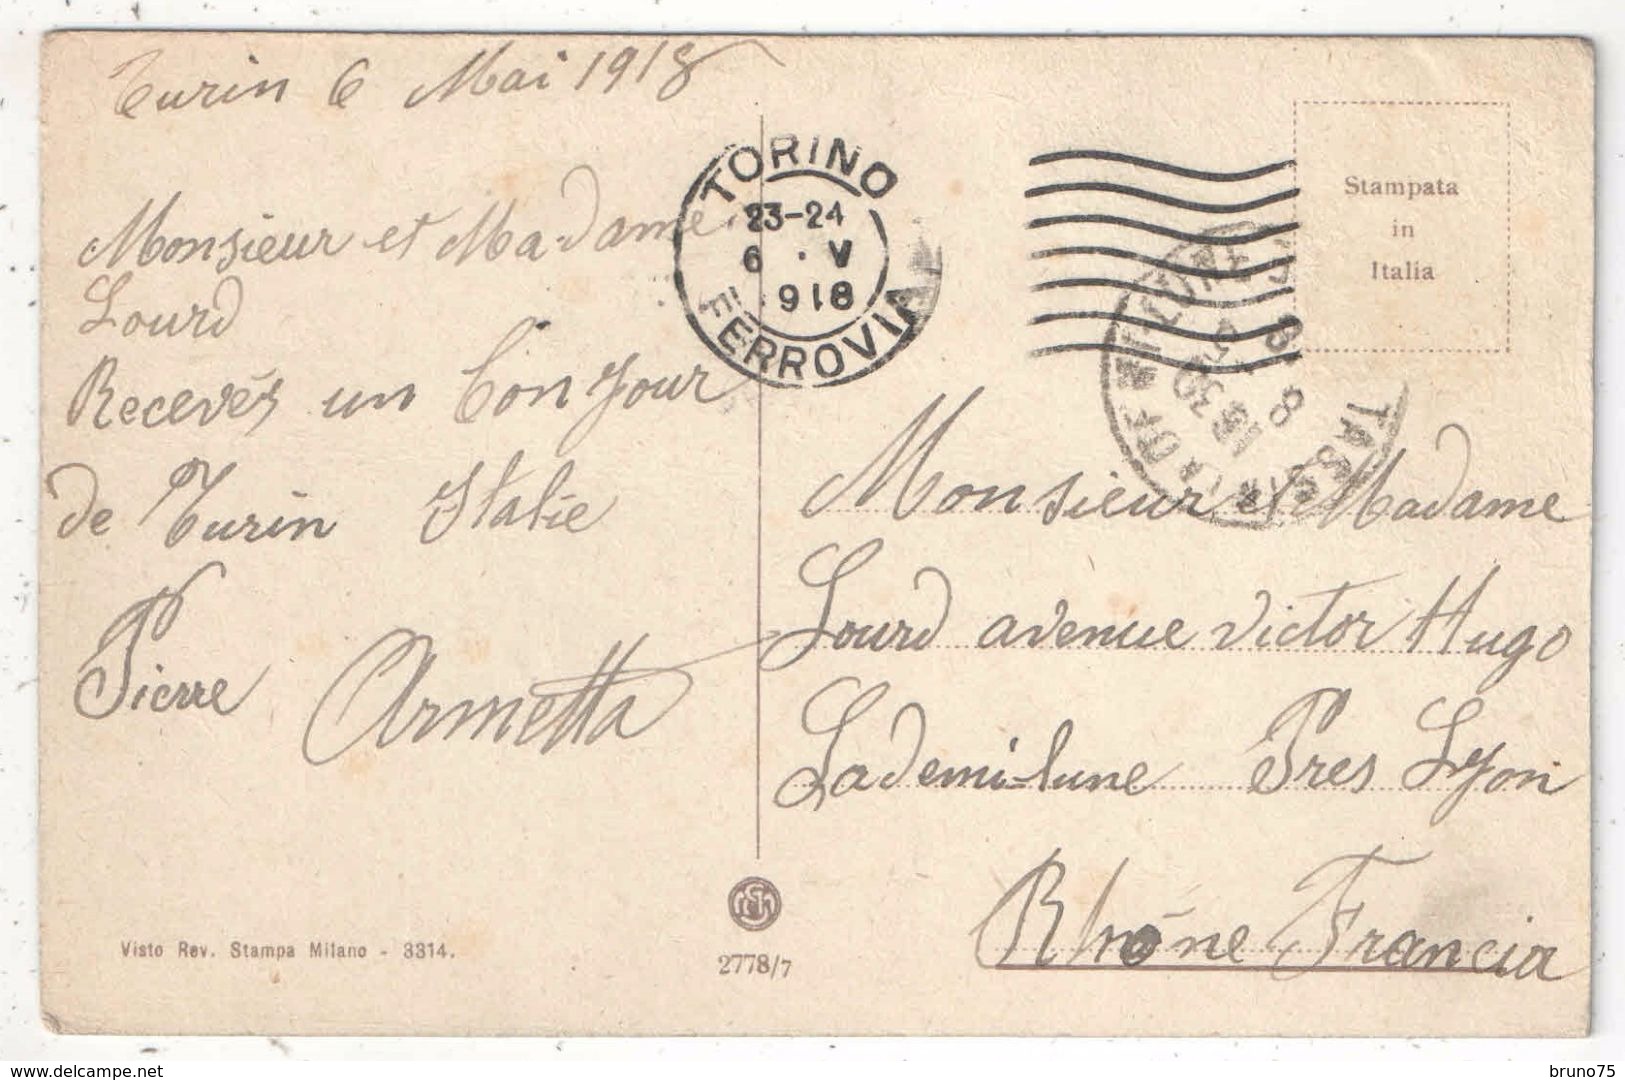 Turin 6 Mai 1918
Monsieur et Madame
Lourd
Recevés un bonjour
de Turin Italie
Pierre Armetta
TORINO
23-24
6 · V
918
FERROVIA
Stampata
in
Italia
TASSIN
8
30
Monsieur et Madame
Lourd avenue victor Hugo
Lademi-lune Pres Lyon
Rhône Francia
Visto Rev. Stampa Milano - 3314.
2778/7
delcampe.net
bruno75